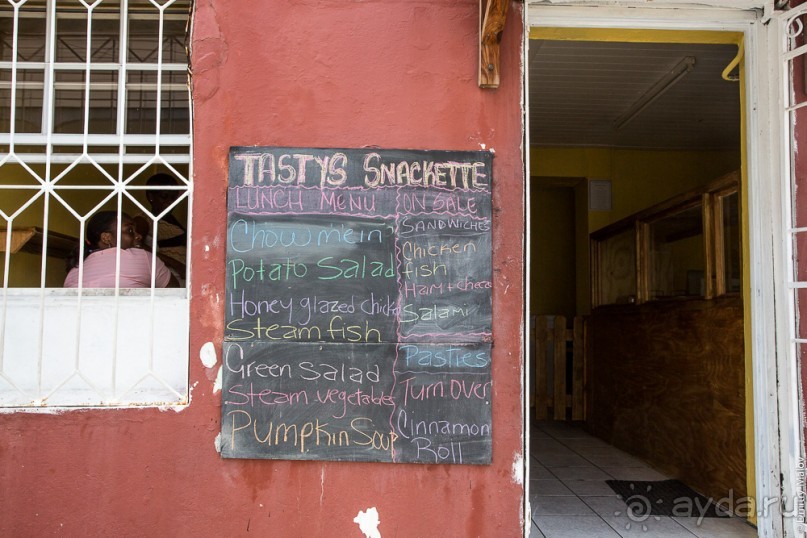 TASTYS SNACKETTE
LUNCH MENU
Chow mein
Potato Salad
Honey glazed chicke
Steam fish
Green Salad
Steam vegetables
Pumpkin Soup
ON SALE
SANDWICHES
Chicken
fish
Ham + Cheese
Salami
Pasties
Turn Over
Cinnamon
Roll
ayda.ru